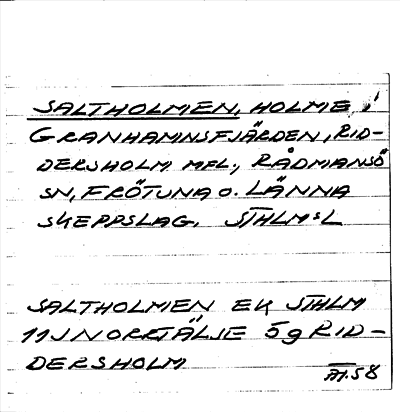 SALTHOLMEN, HOLME, i
GRANHAMNSFJÄRDEN, RID-
DERSHOLM MFL., RÅDMANSÖ
SN, FRÖTUNA O. LÄNNA
SKEPPSLAG. STHLMSL
SALTHOLMEN EK STHLM
11J NORRTÄLJE 5g RID-
DERSHOLM
58